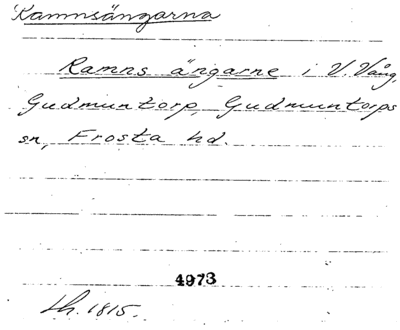 Ramnsängarna
Ramns ängarne i V. Vång,
Gudmuntorp, Gudmuntorps
sn, Frosta hd.
4973
Lh. 1815.